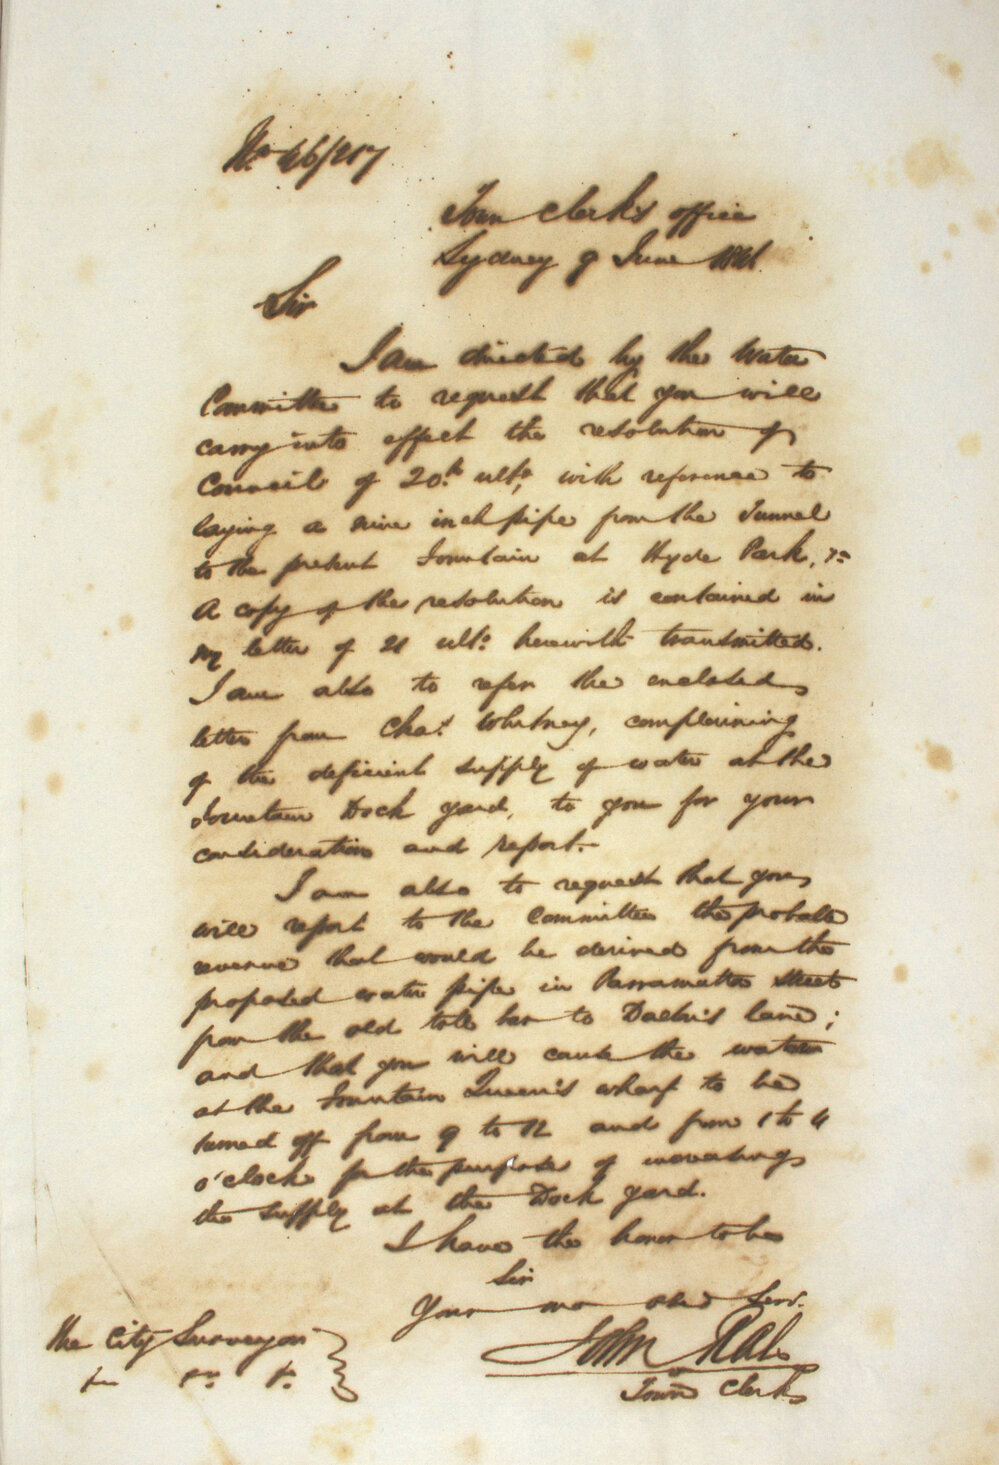 No 46/217
Town Clerk's office
Sydney 9 June 1846
Sir
I am directed by the Water
Committee to request that you will
carry into effect the resolution of
Council of 20th ulto, with reference to
laying a nine inch pipe from the Tunnel
to the present Fountain at Hyde Park,
A copy of the resolution is contained in
my letter of 21 ulto herewith transmitted.
I am also to refer the enclosed
letter from Chas. Whitney, complaining
of the deficient supply of water at the
Fountain Dock yard, to you for your
consideration and report.
I am also to request that you
will report to the Committee the probable
revenue that would be derived from the
proposed water pipe in Parramatta Street
from the old toll bar to Lane;
and that you will cause the water
at the Fountain Queen's wharf to be
turned off from 9 to 12 and from 1 to 4
o'clock for the purpose of increasing
the supply at the Dock yard.
I have the honor to be
Sir
Your mo obed Serv.
John
Town Clerk
The City Surveyor